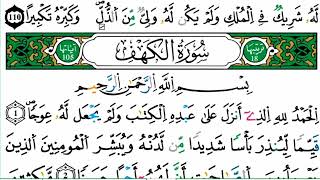 لَهُۥ شَرِيكٌ فِي اِ۬لْمُلْكِ وَلَمْ يَكُن لَّهُۥ وَلِيٌّ مِّنَ اَ۬لذُّلِّ وَكَبِّرْهُ تَكْبِيراً 110
ترتيبها 18 سُورَةُ الكَهْفِ آياتها 105
بِسْمِ اللَّهِ الرَّحْمَٰنِ الرَّحِيمِ
اَ۬لْحَمْدُ لِلهِ اِ۬لذِےٓ أَنزَلَ عَلَىٰ عَبْدِهِ اِ۬لْكِتَٰبَ وَلَمْ يَجْعَل لَّهُۥ عِوَجاً 1
قَيِّماً لِّيُنذِرَ بَأْساً شَدِيداً مِّن لَّدُنْهُ وَيُبَشِّرَ اَ۬لْمُومِنِينَ اَ۬لذِينَ